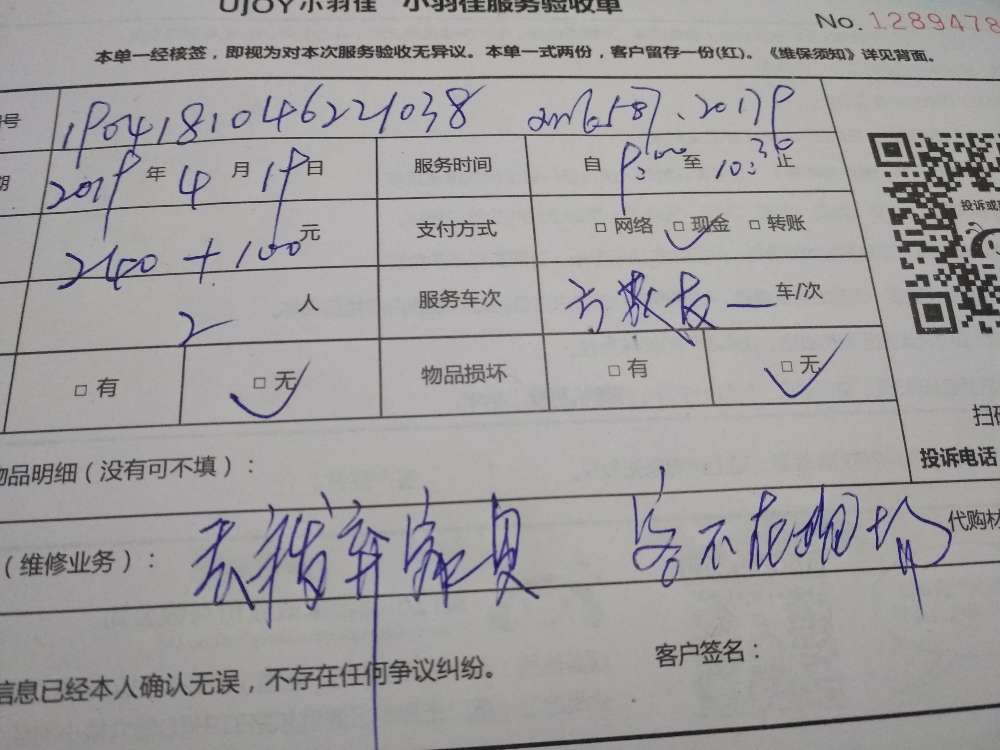 UJOY小羽佳 小羽佳服务验收单
No. 1289478
本单一经核签，即视为对本次服务验收无异议。本单一式两份，客户留存一份(红)。《维保须知》详见背面。
号 19041810462221038
2019年4月19日 服务时间 自9:00至10:30止
240+100元 支付方式 □网络 □现金 □转账
2人 服务车次 一车/次
□有 □无 物品损坏 □有 □无
投诉或
扫
投诉电话
物品明细（没有可不填）：
（维修业务）： 客不在现场 代购材
信息已经本人确认无误，不存在任何争议纠纷。
客户签名：